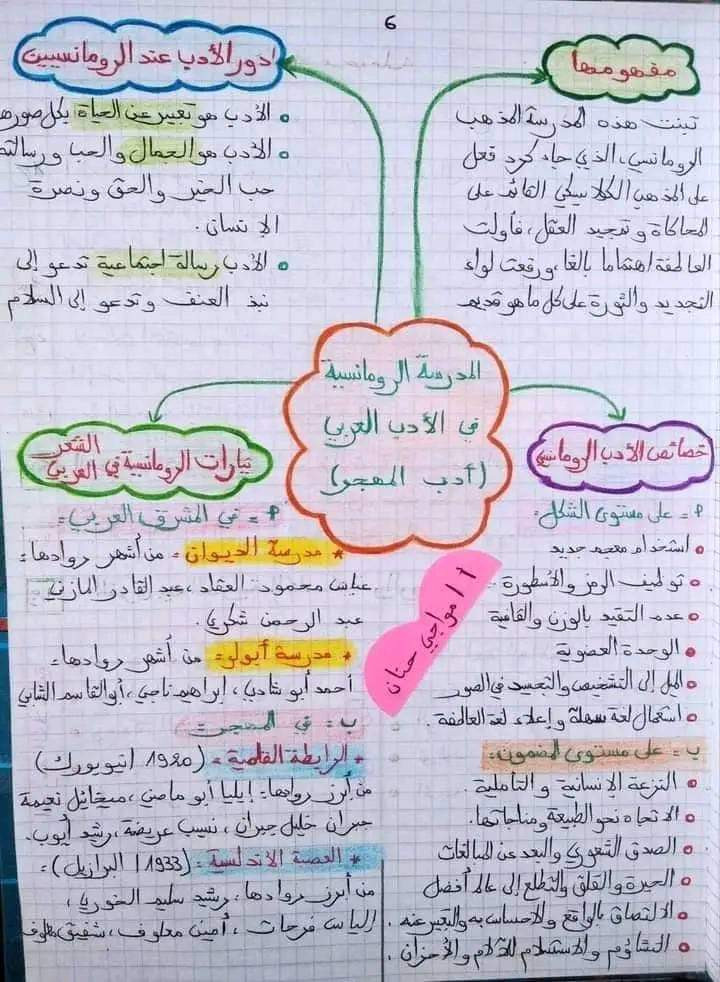 6
مفهومها
تبنت هذه المدرسة المذهب
الرومانسي، الذي جاء كرد فعل
على المذهب الكلاسيكي القائم على
المحاكاة و تمجيد العقل، فأولت
العاطفة اهتماما بالغا، ورفعت لواء
التجديد والثورة على كل ما هو قديم
دور الأدب عند الرومانسيين
الأدب هو تعبير عن الحياة بكل صورها
الأدب هو الجمال والحب ورسالته
حب الخير والحق ونصرة
الإنسان.
الأدب رسالة اجتماعية تدعو إلى
نبذ العنف وتدعو إلى السلام
المدرسة الرومانسية
في الأدب العربي
(أدب المهجر)
خصائص الأدب الرومانسي
أ- على مستوى الشكل:
استخدام معجم جديد
توظيف الرمز والأسطورة
عدم التقيد بالوزن والقافية
الوحدة العضوية
الميل إلى التشخيص والتجسيد في الصور
استعمال لغة سهلة وإعلاء لغة العاطفة.
ب- على مستوى المضمون:
النزعة الإنسانية والتأملية.
الاتجاه نحو الطبيعة ومناجاتها.
الصدق الشعوري والبعد عن المبالغات
الحيرة والقلق والتطلع إلى عالم أفضل
الالتصاق بالواقع والإحساس به والتعبير عنه.
التشاؤم والاستسلام للآلام والأحزان.
تيارات الرومانسية في الشعر
العربي
أ- في المشرق العربي:
* مدرسة الديوان: من أشهر روادها:
عباس محمود العقاد، عبد القادر المازني
عبد الرحمن شكري.
* مدرسة أبولو: من أشهر روادها:
أحمد أبو شادي، ابراهيم ناجي، أبو القاسم الشابي
ب- في المهجر:
* الرابطة القلمية: (1920 نيويورك)
من أبرز روادها: إيليا أبو ماضي، ميخائيل نعيمة
جبران خليل جبران، نسيب عريضة، رشيد أيوب.
* العصبة الأندلسية: (1933 / البرازيل):
من أبرز روادها، رشيد سليم الخوري،
إلياس فرحات، أمين معلوف، شفيق معلوف
أ/ مواجي حنان